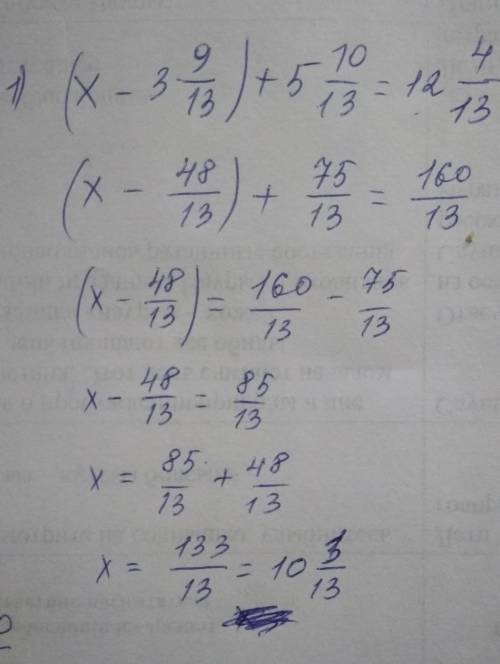 1) (x - 3 9/13) + 5 10/13 = 12 4/13
(x - 48/13) + 75/13 = 160/13
(x - 48/13) = 160/13 - 75/13
x - 48/13 = 85/13
x = 85/13 + 48/13
x = 133/13 = 10 3/13